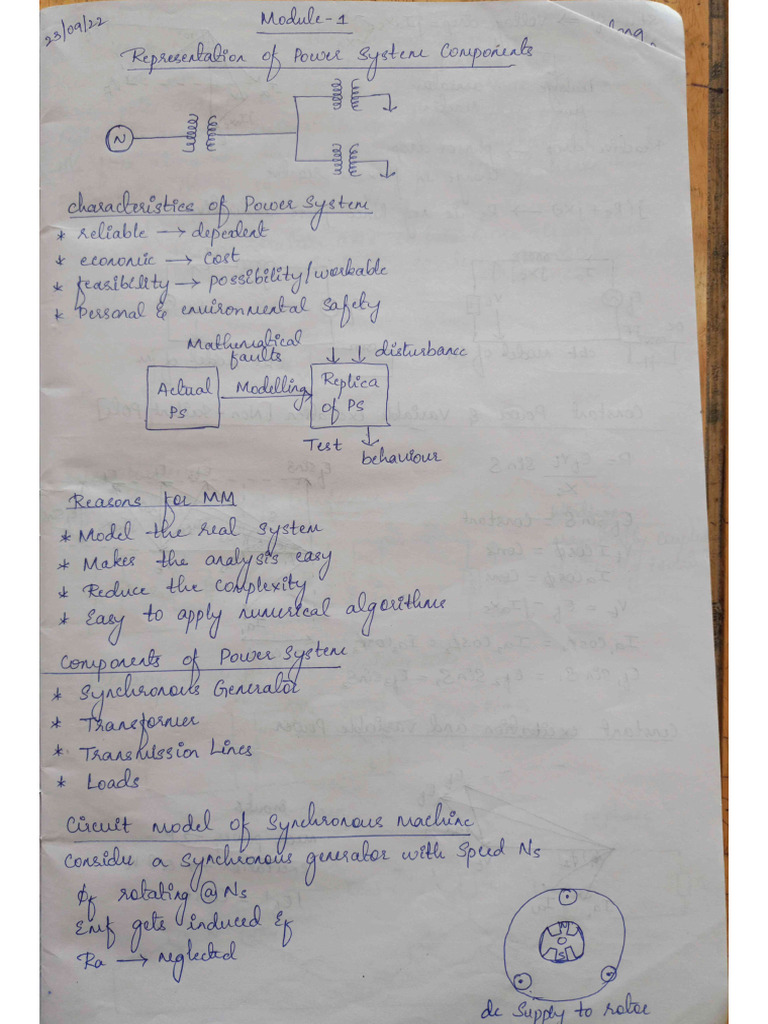 23/09/22
Module-1
Representation of Power System Components
N
Characteristics of Power System
* reliable → depedent
* economic → cost
* feasibility → possibility/workable
* Personal & environmental safety
Mathematical
faults
disturbance
Actual
PS
Modelling
Replica
of PS
Test
behaviour
Reasons for MM
* Model the real system
* Makes the analysis easy
* Reduce the complexity
* Easy to apply numerical algorithms
Components of Power System
* Synchronous Generator
* Transformer
* Transmission Lines
* Loads
Circuit model of Synchronous machine
Consider a synchronous generator with Speed Ns
ϕf rotating @ Ns
Emf gets induced Ef
Ra → neglected
N
S
dc Supply to rotor